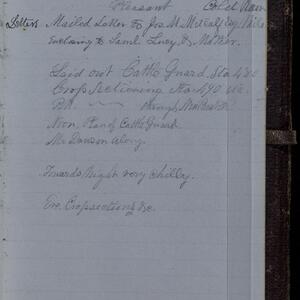 Pleasant Cold Raw
Letters Mailed Letter to Jos. M. Metcalf
Enclosing to Saml. Lucy & Mother.
Laid out Cattle Guard Sta 480
Cropsectioning Sta 490 &c.
P.M. through
Noon, Plan of Cattle Guard
Mr Dawson along.
Towards Night very chilly.
Eve. Cropsectiong &c.